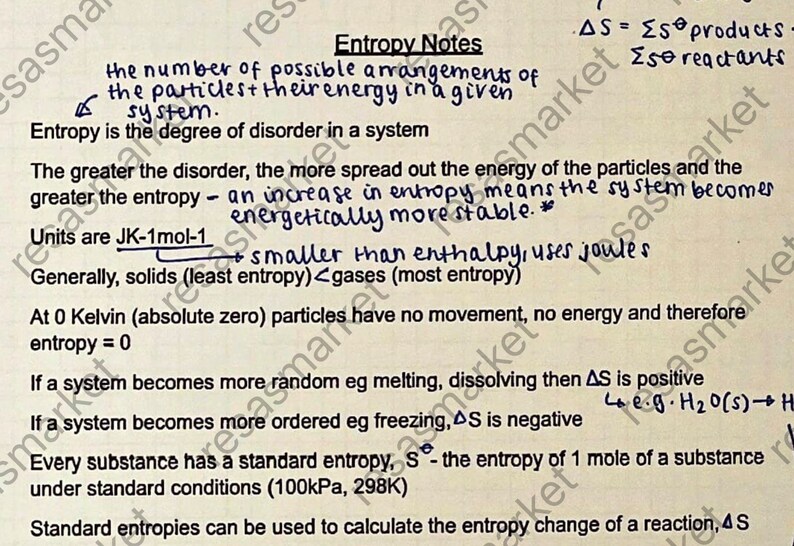 ΔS = Σs⦵products -
Σs⦵ reactants
Entropy Notes
the number of possible arrangements of
the particles + their energy in a given
system.
Entropy is the degree of disorder in a system
The greater the disorder, the more spread out the energy of the particles and the
greater the entropy - an increase in entropy means the system becomes
energetically more stable. *
Units are JK-1mol-1
smaller than enthalpy, uses joules
Generally, solids (least entropy) < gases (most entropy)
At 0 Kelvin (absolute zero) particles have no movement, no energy and therefore
entropy = 0
If a system becomes more random eg melting, dissolving then ΔS is positive
↳ e.g. H2O(s) → H
If a system becomes more ordered eg freezing, ΔS is negative
Every substance has a standard entropy, S⦵ - the entropy of 1 mole of a substance
under standard conditions (100kPa, 298K)
Standard entropies can be used to calculate the entropy change of a reaction, ΔS
resasmarket
resasmarket
resasmarket
resasmarket
resasmarket
resasmarket
resasmarket
resasmarket
resasmarket